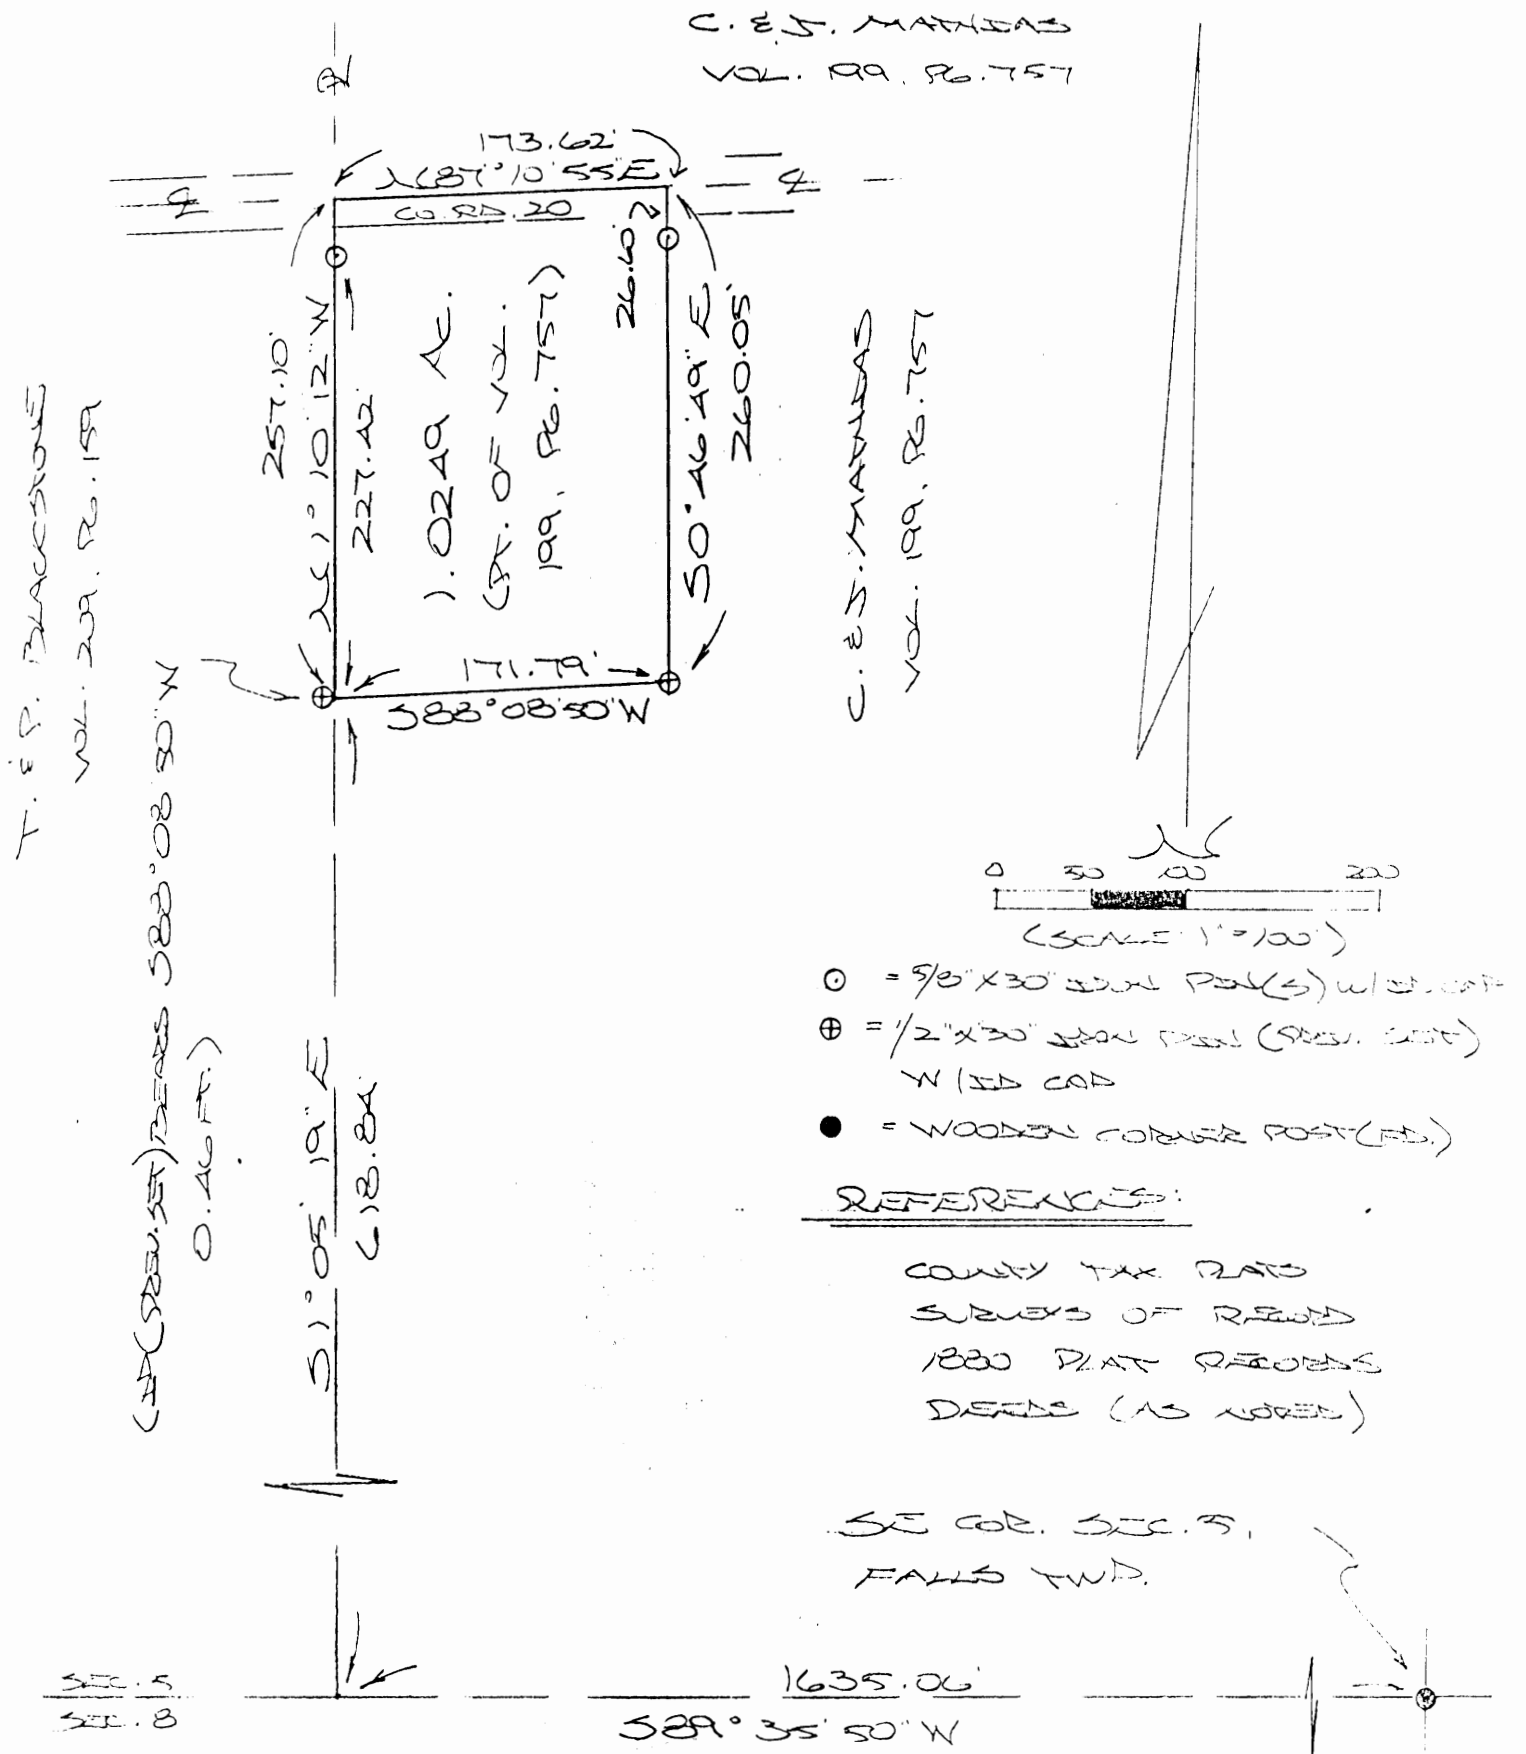 C. & J. MATHIAS
VOL. 199, PG. 757
173.62'
N87°10'55"E
CO. RD. 20
26.60'
257.10'
N1°10'12"W
227.42'
1.0249 AC.
(PT. OF VOL.
199, PG. 757)
S0°46'49"E
260.05'
C. & J. MATHIAS
VOL. 199, PG. 757
T. & P. BLACKSTONE
VOL. 209, PG. 159
171.79'
S88°08'50"W
(IP(PREV. SET) BEARS S88°08'50"W
0.46 FT.)
N
0 50 100 200
(SCALE 1"=100')
= 5/8"X30" IRON PIN(S) W/ID. CAP
= 1/2"X30" IRON PIN (PREV. SET)
W/ID CAP
= WOODEN CORNER POST(FD.)
REFERENCES:
COUNTY TAX PLATS
SURVEYS OF RECORD
1880 PLAT RECORDS
DEEDS (AS NOTED)
S1°05'19"E
618.84'
SE COR. SEC. 5,
FALLS TWP.
SEC. 5
SEC. 8
1635.06'
S89°35'50"W